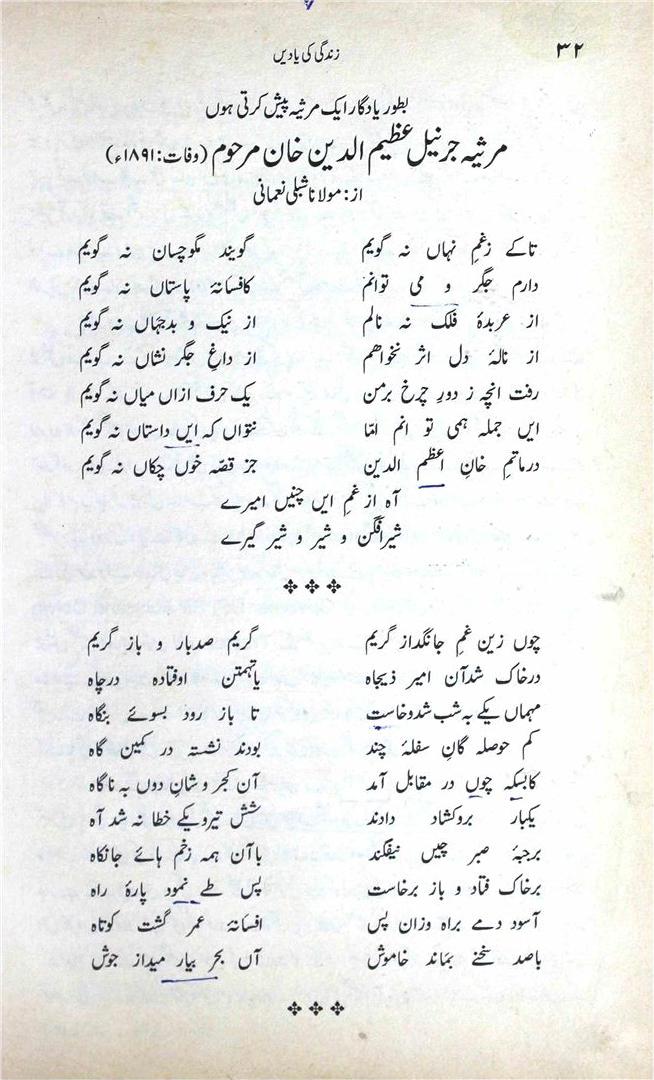 ۳۲
زندگی کی یادیں
بطور یادگار ایک مرثیہ پیش کرتی ہوں
مرثیہ جرنیل عظیم الدین خان مرحوم (وفات: ۱۸۹۱ء)
از: مولانا شبلی نعمانی
تاکے زغمِ نہاں نہ گویم گویند مگوچساں نہ گویم
دارم جگر و می توانم کافسانۂ پاستاں نہ گویم
از عربدۂ فلک نہ نالم از نیک و بدجہاں نہ گویم
از نالۂ دل اثر نخواھم از داغِ جگر نشاں نہ گویم
رفت انچہ ز دورِ چرخ برمن یک حرف ازاں میاں نہ گویم
ایں جملہ ہمی تو انم امّا نتواں کہ ایں داستاں نہ گویم
درماتمِ خانِ اعظم الدین جز قصّہ خوں چکاں نہ گویم
آہ از غمِ ایں چنیں امیرے
شیرافگن و شیر و شیر گیرے
چوں زین غمِ جانگداز گریم گریم صدبار و باز گریم
درخاک شدآن امیر ذیجاہ یاتہمتن اوفتادہ درچاہ
مہماں یکے بہ شب شدوخاست تا باز رود بسوئے بنگاہ
کم حوصلہ گانِ سفلۂ چند بودند نشستہ در کمین گاہ
کابسکہ چوں در مقابل آمد آن کجر وشانِ دوں بہ ناگاہ
یکبار بروکشاد دادند شش تیرویکے خطا نہ شد آہ
برجبۂ صبر چیں نیفگند باآن ہمہ زخم ہائے جانکاہ
برخاک فتاد و باز برخاست پس طے نمود پارۂ راہ
آسود دمے براہ وزان پس افسانۂ عمر گشت کوتاہ
باصد سخنے بماند خاموش آں بحر بیار میداز جوش